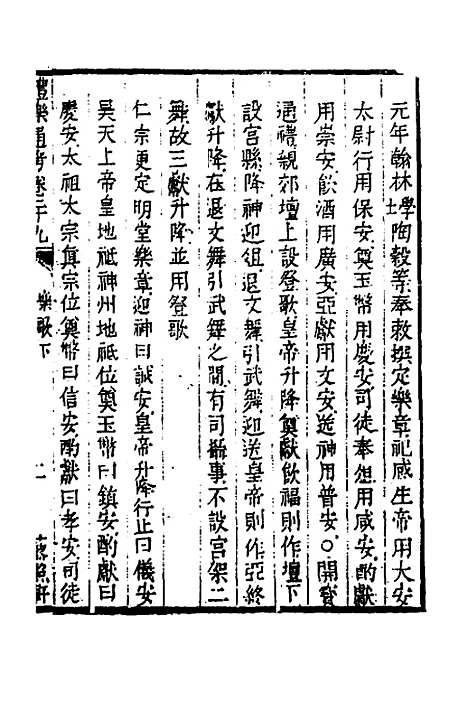 元年翰林學士陶穀等奉敕撰定樂章祀感生帝用大安
太尉行用保安奠玉幣用慶安司徒奉俎用咸安酌獻
用崇安飲酒用廣安亞獻用文安送神用普安○開寶
通禮親郊壇上設登歌皇帝升降奠獻飲福則作壇下
設宮縣降神迎俎退文舞引武舞迎送皇帝則作亞終
獻升降在退文舞引武舞之間有司攝事不設宮架二
舞故三獻升降並用登歌
仁宗更定明堂樂章迎神曰誠安皇帝升降行止曰儀安
昊天上帝皇地祇神州地祇位奠玉幣曰鎮安酌獻曰
慶安太祖太宗真宗位奠幣曰信安酌獻曰孝安司徒
禮樂通考卷三十九 樂歌下 二